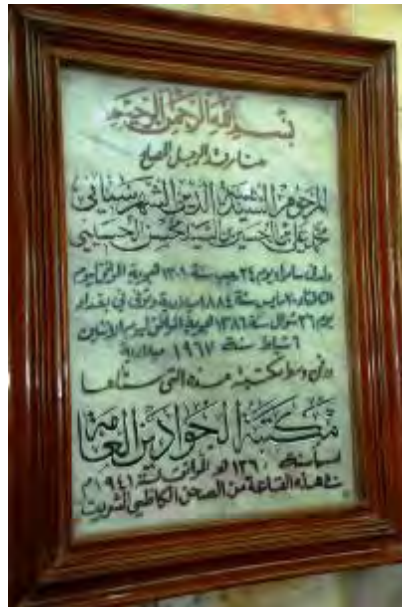 بسم الله الرحمن الرحيم
هنا رقد الرجل المصلح
المرحوم السيد هبة الدين الشهرستاني
محمد علي بن الحسين بن السيد محسن الحسيني
ولد في سامراء يوم ٢٤ رجب سنة ١٣٠١ هجرية الموافق ليوم
الثلاثاء ٢٠ مايس سنة ١٨٨٤ ميلادية وتوفي في بغداد
يوم ٢٦ شوال سنة ١٣٨٦ هجرية الموافق ليوم الاثنين
٦ شباط سنة ١٩٦٧ ميلادية
ودفن وسط مكتبة هذه التي سماها
مكتبة الجوادين العامة
سنة ١٣٦٠ هـ الموافق لسنة ١٩٤١ م
في هذه القاعة من الصحن الكاظمي الشريف